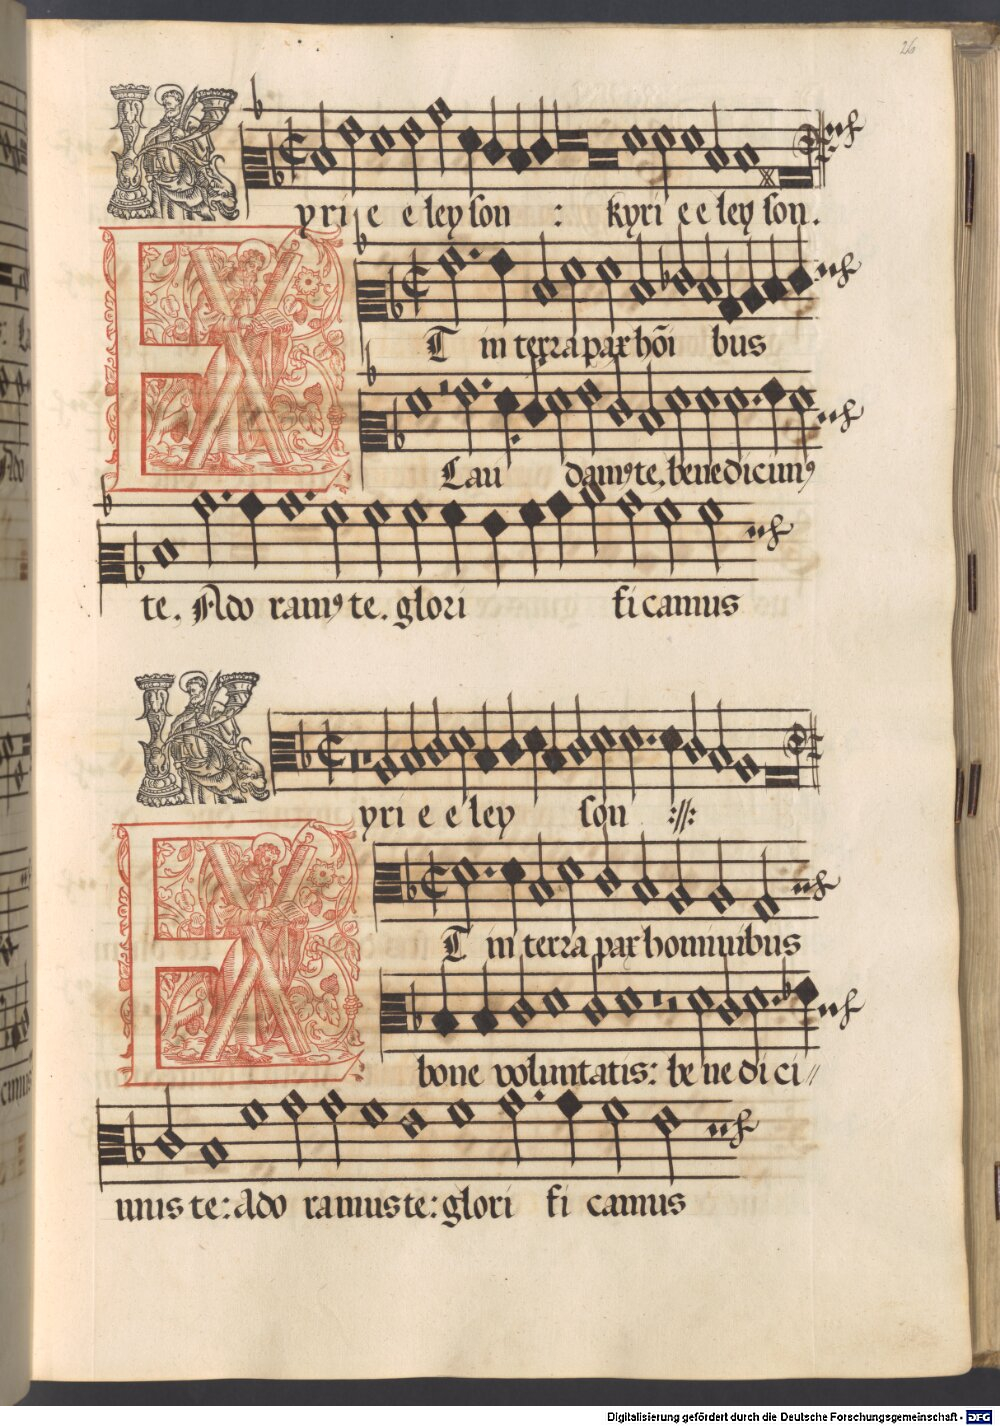 26
Kyri e e ley son : kyri e e ley son.
ET in terra pax hōi bus
Lau damꝰ te, benedicimꝰ
te. Ado ramꝰ te. glori fi camus
Kyri e e ley son ://:
ET in terra pax hominibus
bone voluntatis: be ne di ci //
mus te: Ado ramus te: glori fi camus
Digitalisierung gefördert durch die Deutsche Forschungsgemeinschaft - DFG